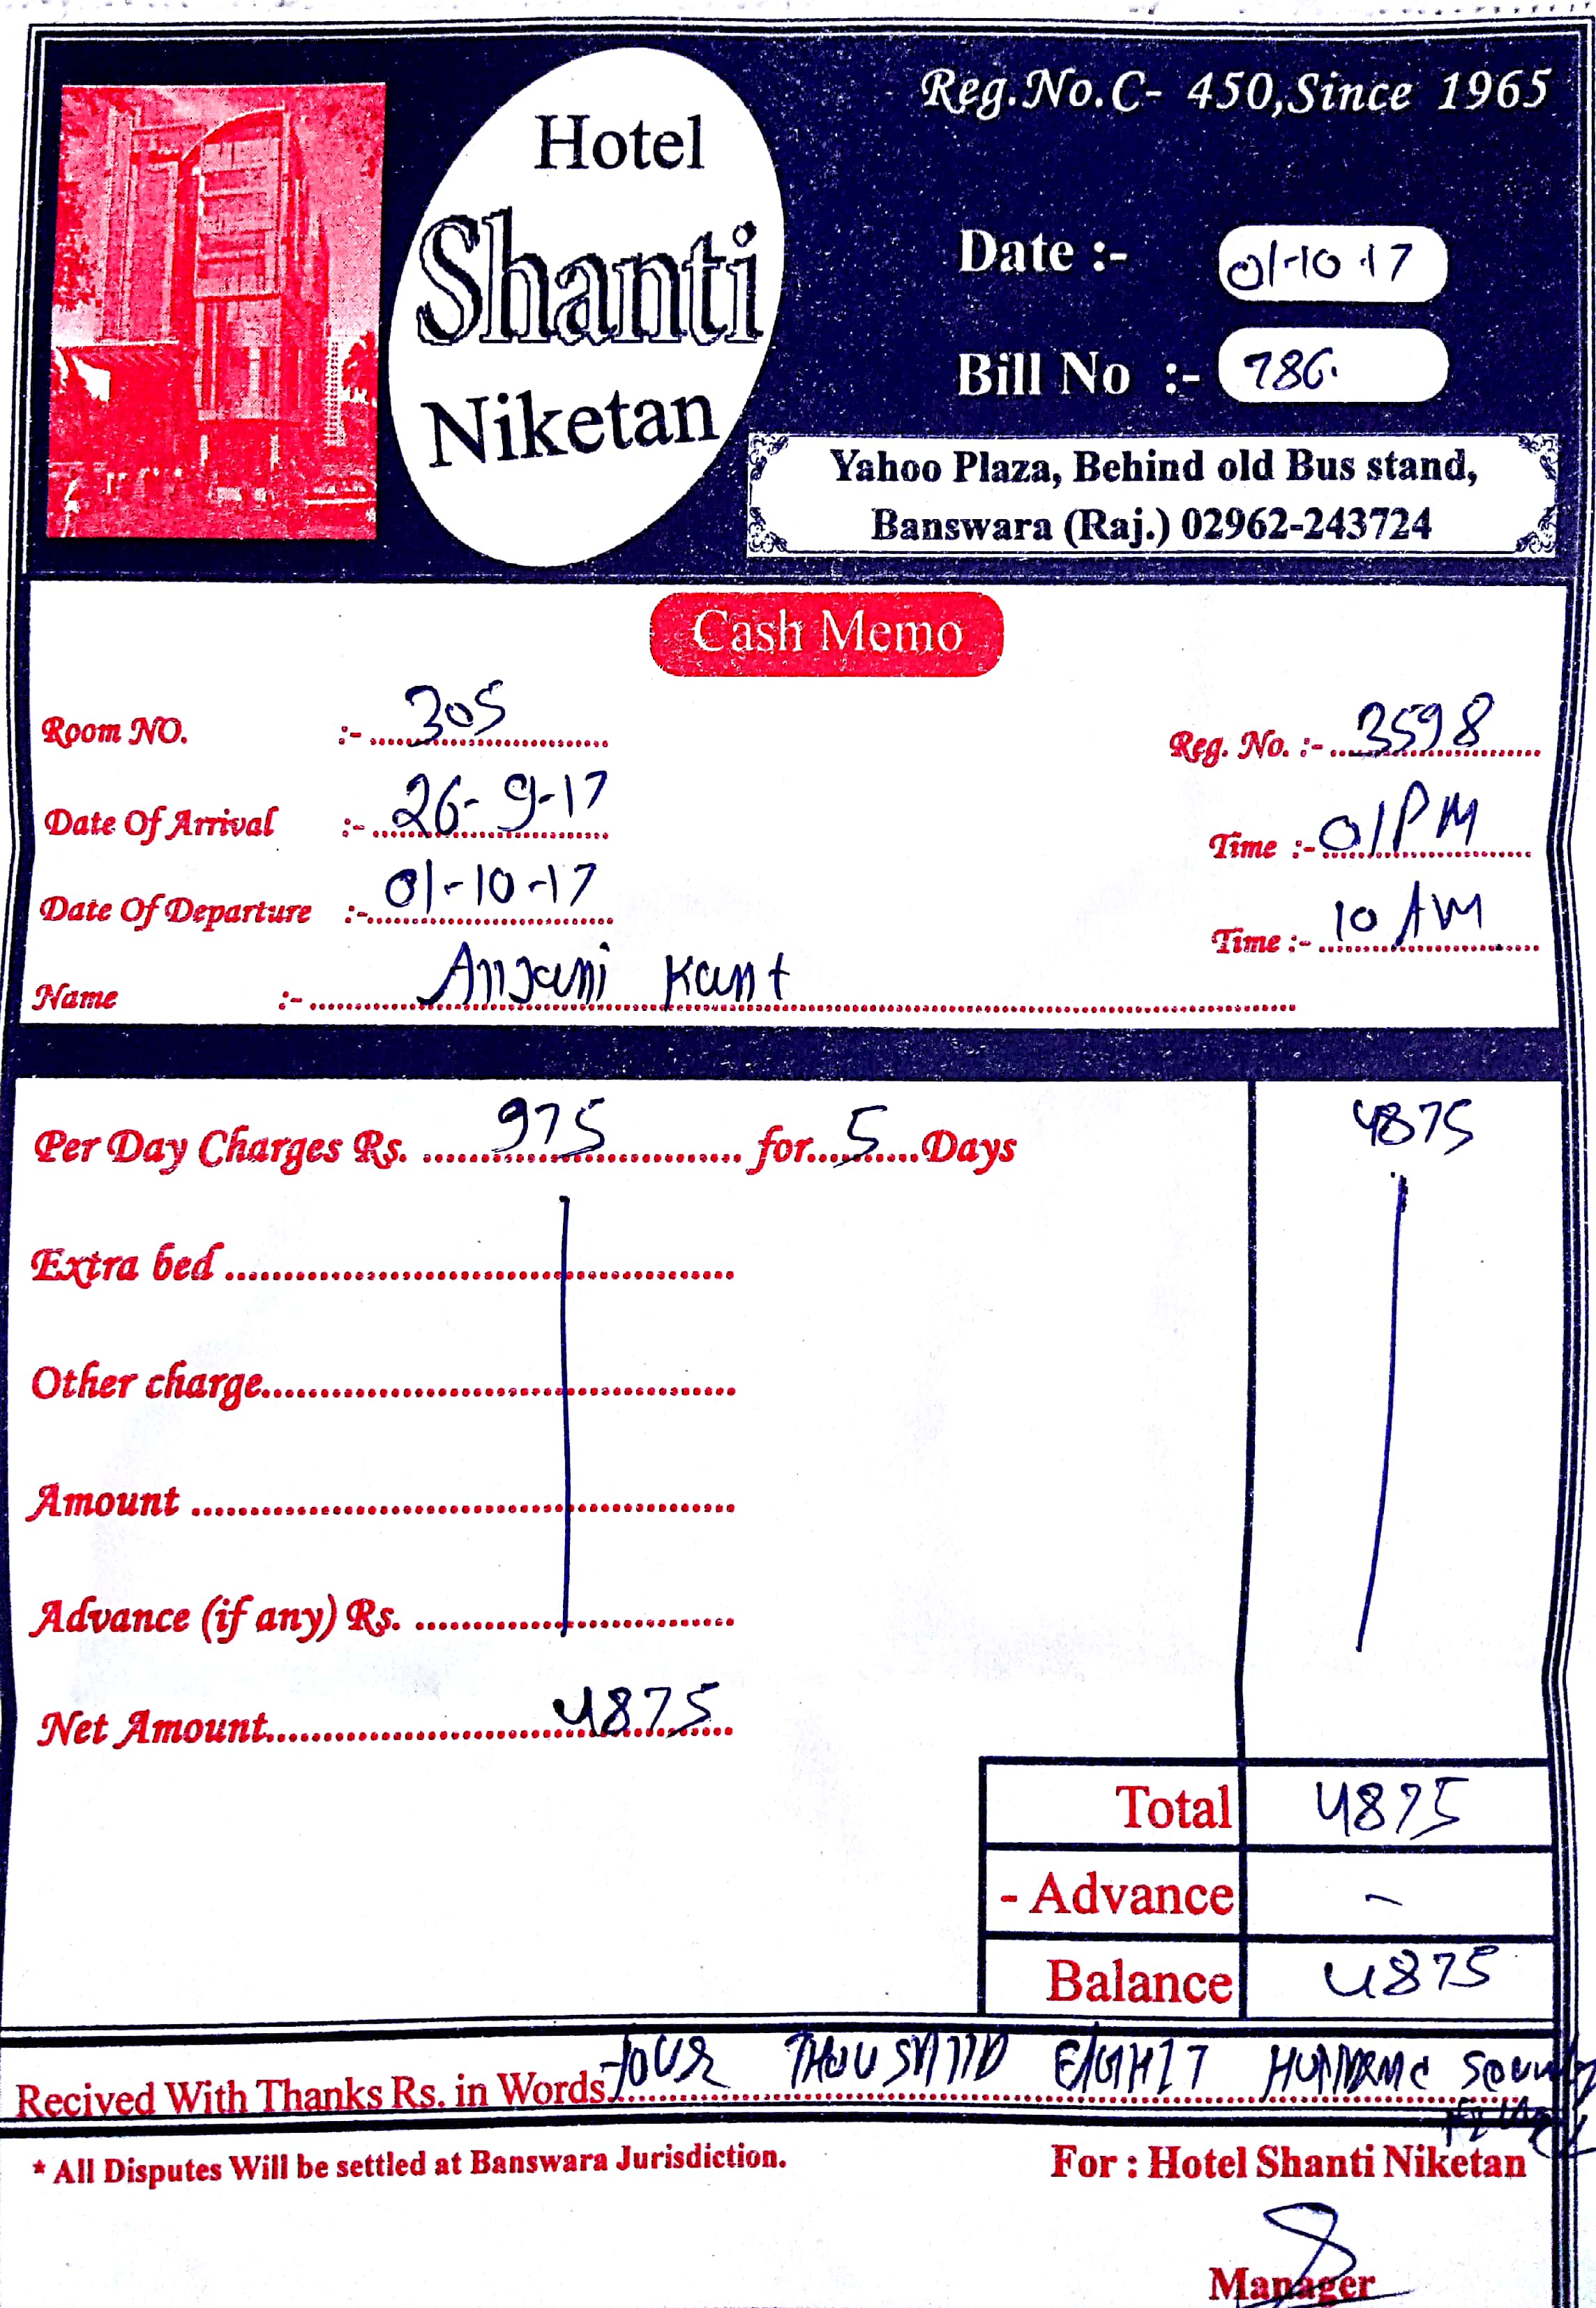 Reg.No.C- 450,Since 1965
Hotel
Shanti
Niketan
Date :- 01-10-17
Bill No :- 786.
Yahoo Plaza, Behind old Bus stand,
Banswara (Raj.) 02962-243724
Cash Memo
Room NO. :- 305 Reg. No. :- 3598
Date Of Arrival :- 26-9-17 Time :- 01PM
Date Of Departure :- 01-10-17 Time :- 10 AM
Name :- Anjani Kant
Per Day Charges Rs. 975 for 5 Days 4875
Extra bed
Other charge
Amount
Advance (if any) Rs.
Net Amount 4875
Total 4875
- Advance -
Balance 4875
Recived With Thanks Rs. in Words four THOUSAND
* All Disputes Will be settled at Banswara Jurisdiction.
For : Hotel Shanti Niketan
Manager